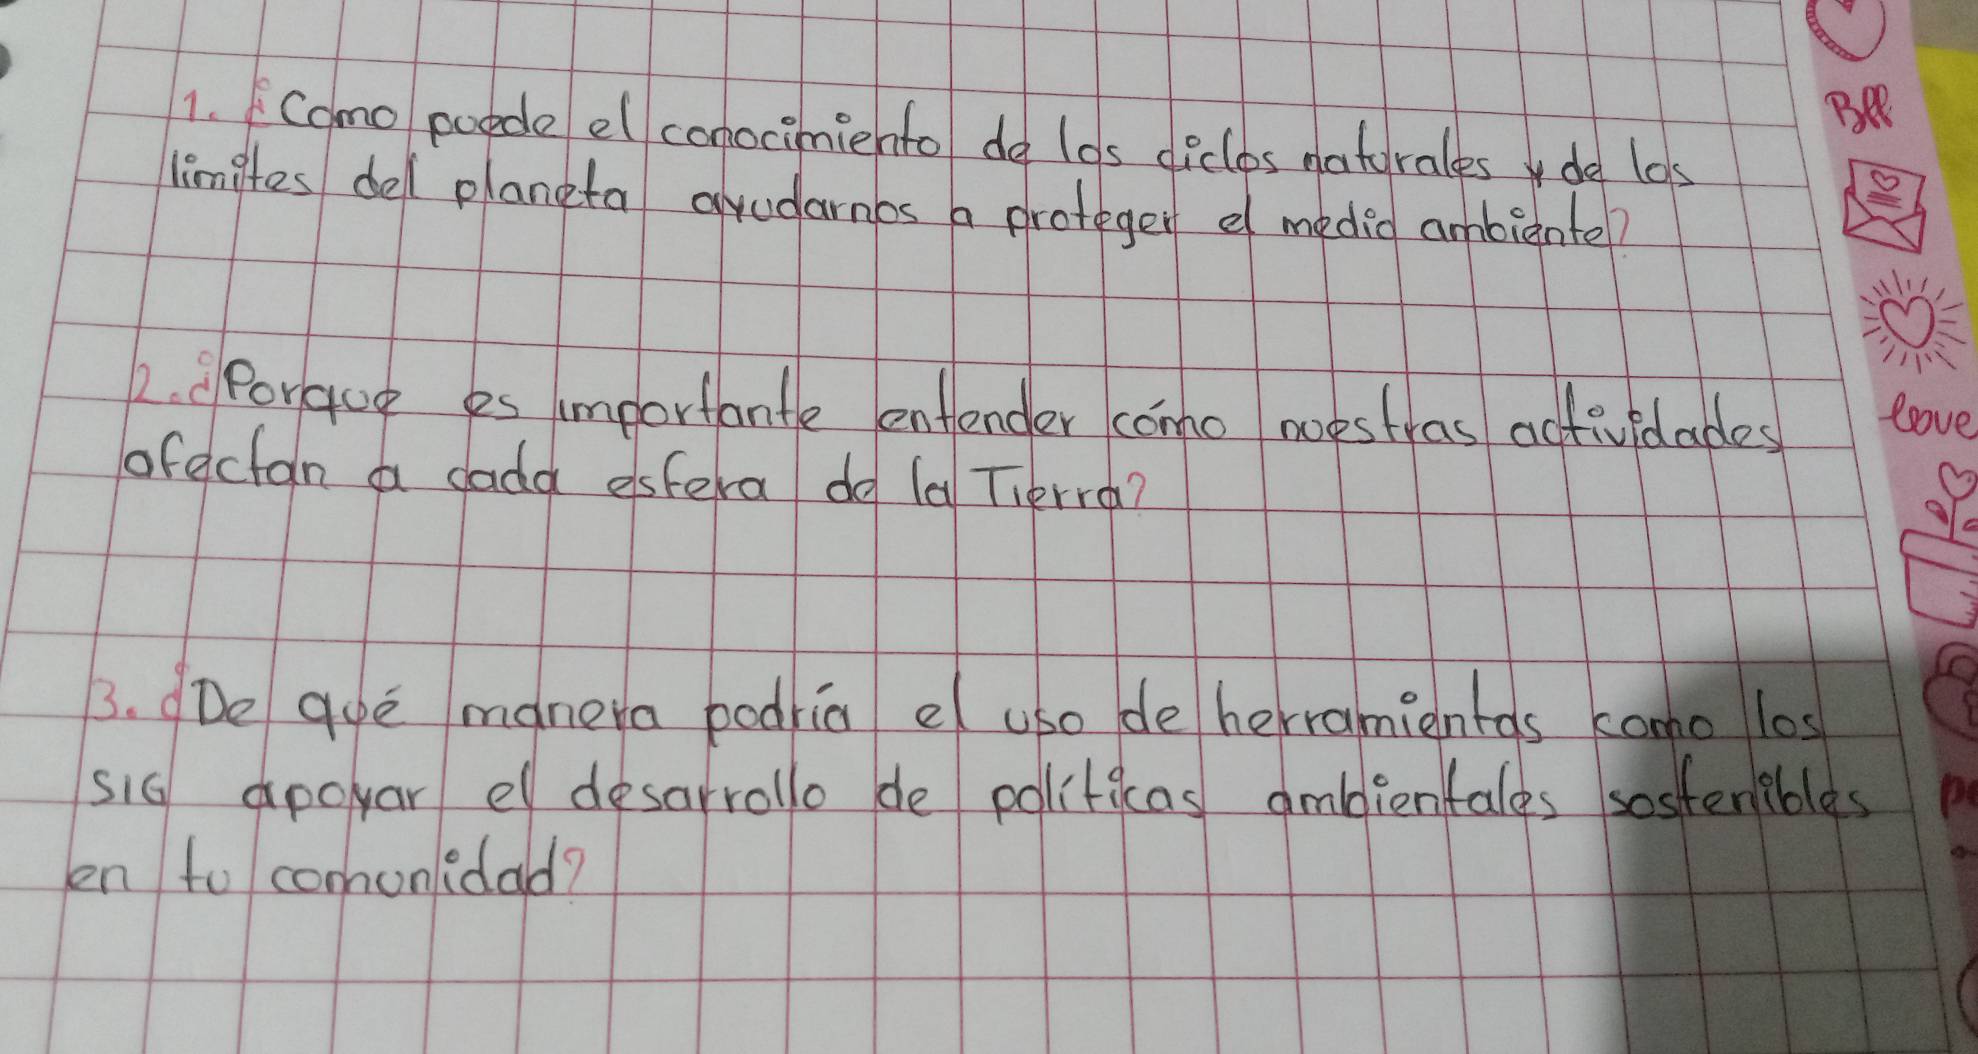 1. ¿Como puede el conocimiento de los ciclos naturales y de los
limites del planeta ayudarnos a proteger el medio ambiente?
2. ¿Porque es importante entender cómo nuestras actividades
afectan a cada esfera de la Tierra?
3. ¿De qué manera podría el uso de herramientas como los
SIG apoyar el desarrollo de políticas ambientales sostenibles
en tu comunidad?
Bee
loove